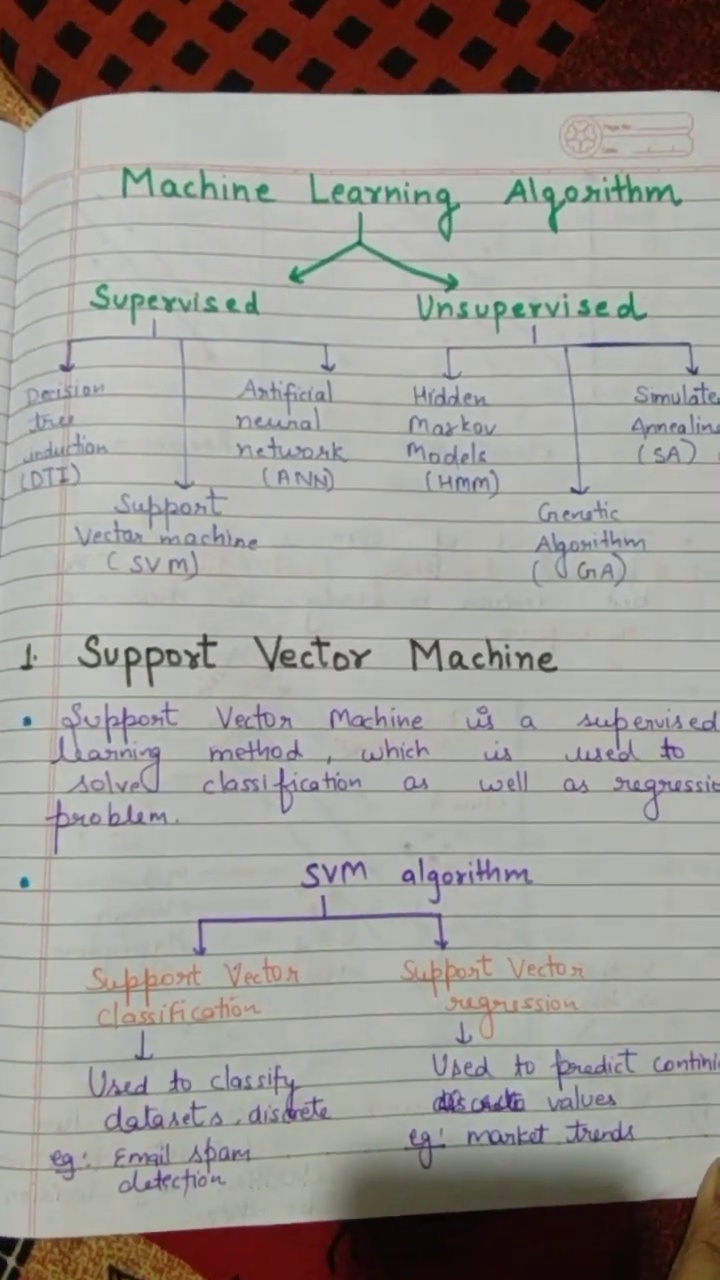 Machine Learning Algorithm
Supervised
Unsupervised
Decision
tree
induction
(DTI)
Support
Vector machine
(SVM)
Artificial
neural
network
(ANN)
Hidden
Markov
Models
(HMM)
Genetic
Algorithm
(GA)
Simulate
Annealin
(SA)
1. Support Vector Machine
• Support Vector Machine is a supervised
learning method, which is used to
solve classification as well as regressio
problem.
• SVM algorithm
Support Vector
classification
Used to classify
datasets, discrete
eg: Email spam
detection
Support Vector
regression
Used to predict continu
values
eg: market trends